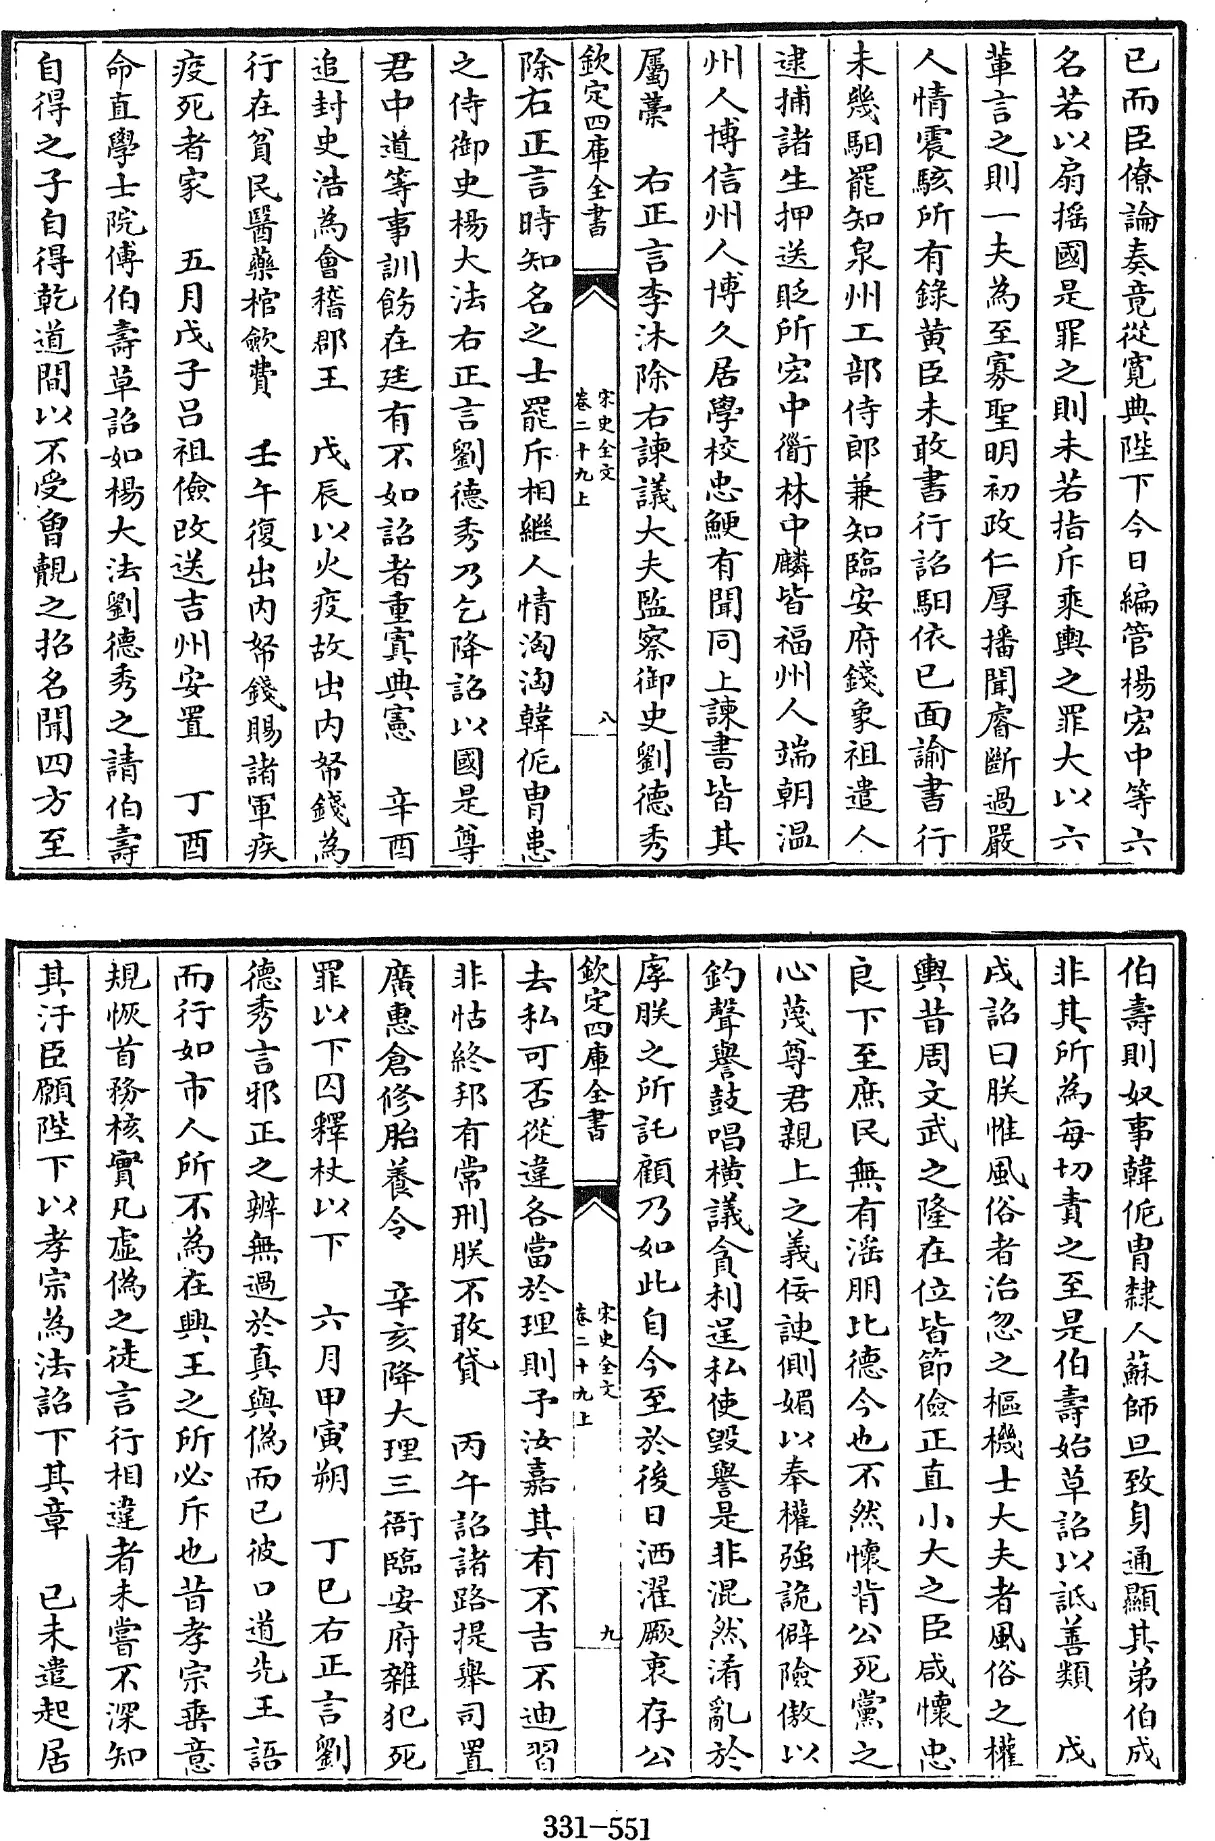 已而臣僚論奏竟從寛典陛下今日編管楊宏中等六
名若以扇摇國是罪之則未若指斥乘輿之罪大以六
軰言之則一夫為至寡聖明初政仁厚播聞睿斷過嚴
人情震駭所有錄黄臣未敢書行詔馹依已面諭書行
未幾馹罷知泉州工部侍郎兼知臨安府錢象祖遣人
逮捕諸生押送貶所宏中衟林中麟皆福州人端朝温
州人博信州人博久居學校忠鯁有聞同上諫書皆其
屬藁　右正言李沐除右諫議大夫監察御史劉德秀
欽定四庫全書
宋史全文
卷二十九上
八
除右正言時知名之士罷斥相繼人情洶洶韓侂胄患
之侍御史楊大法右正言劉德秀乃乞降詔以國是尊
君中道等事訓飭在廷有不如詔者重寘典憲　辛酉
追封史浩為會稽郡王　戊辰以火疫故出内帑錢為
行在貧民醫藥棺歛費　壬午復出内帑錢賜諸軍疾
疫死者家　五月戊子吕祖儉改送吉州安置　丁酉
命直學士院傅伯壽草詔如楊大法劉德秀之請伯壽
自得之子自得乾道間以不受曾覿之招名聞四方至
伯壽則奴事韓侂胄隸人蘇師旦致身通顯其弟伯成
非其所為每切責之至是伯壽始草詔以詆善類　戊
戌詔曰朕惟風俗者治忽之樞機士大夫者風俗之權
輿昔周文武之隆在位皆節儉正直小大之臣咸懷忠
良下至庶民無有滛朋比德今也不然懷背公死黨之
心蔑尊君親上之義佞諛側媚以奉權強詭僻險傲以
釣聲譽鼓唱横議貪利逞私使毀譽是非混然淆亂於
虖朕之所託顧乃如此自今至於後日洒濯厥衷存公
欽定四庫全書
宋史全文
卷二十九上
九
去私可否從違各當於理則予汝嘉其有不吉不迪習
非怙終邦有常刑朕不敢貸　丙午詔諸路提舉司置
廣惠倉修胎養令　辛亥降大理三衙臨安府雜犯死
罪以下囚釋杖以下　六月甲寅朔　丁巳右正言劉
德秀言邪正之辨無過於真與偽而已彼口道先王語
而行如市人所不為在興王之所必斥也昔孝宗垂意
規恢首務核實凡虛偽之徒言行相違者未嘗不深知
其汙臣願陛下以孝宗為法詔下其章　已未遣起居
331-551